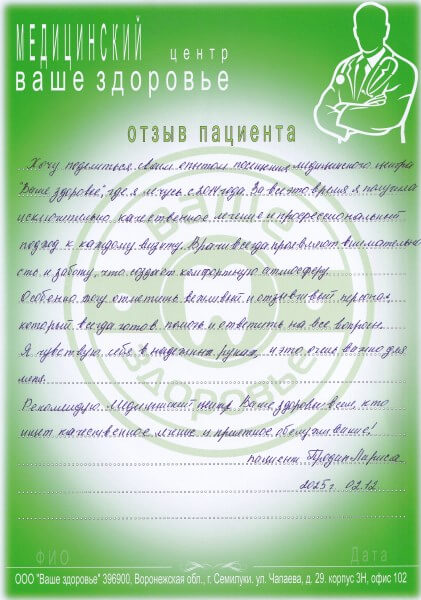 МЕДИЦИНСКИЙ центр
ваше здоровье
отзыв пациента
Хочу поделиться своим опытом посещения медицинского центра
"Ваше здоровье", где я лечусь с 2014 года. За всё это время я получила
исключительно качественное лечение и профессиональный
подход к каждому визиту. Врачи всегда проявляют внимательно
сть и заботу, что создает комфортную атмосферу.
Особенно хочу отметить вежливый и отзывчивый персонал,
который всегда готов помочь и ответить на все вопросы.
Я чувствую себя в надежных руках, и это очень важно для
меня.
Рекомендую Медицинский центр Ваше здоровье всем, кто
ищет качественное лечение и приятное обслуживание!
пациент Лариса
2025 г 02.12.
ФИО Дата
ООО "Ваше здоровье" 396900, Воронежская обл., г. Семилуки. ул. Чапаева, д. 29. корпус 3Н, офис 102